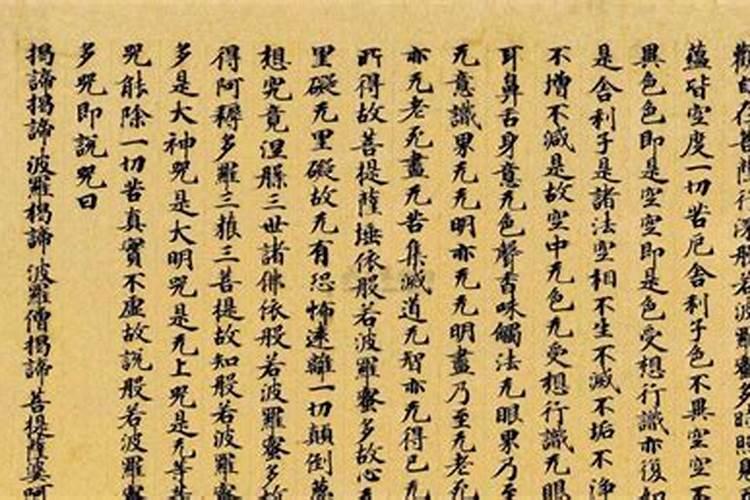 觀自在菩薩行深般若波羅蜜多時照見
蘊皆空度一切苦厄舍利子色不異空空不
異色色即是空空即是色受想行識亦復
是舍利子是諸法空相不生不滅不垢不淨
不增不減是故空中无色无受想行識无眼
耳鼻舌身意无色聲香味觸法无眼界乃至
无意識界无无明亦无无明盡乃至无老死
亦无老死盡无苦集滅道无智亦无得已无
所得故菩提薩埵依般若波羅蜜多故心无
罣礙无罣礙故无有恐怖遠離一切顛倒夢
想究竟涅槃三世諸佛依般若波羅蜜多故
得阿耨多羅三藐三菩提故知般若波羅蜜
多是大神咒是大明咒是无上咒是无等等
咒能除一切苦真實不虛故說般若波羅蜜
多咒即說咒曰
揭諦揭諦波羅揭諦波羅僧揭諦菩提薩婆訶